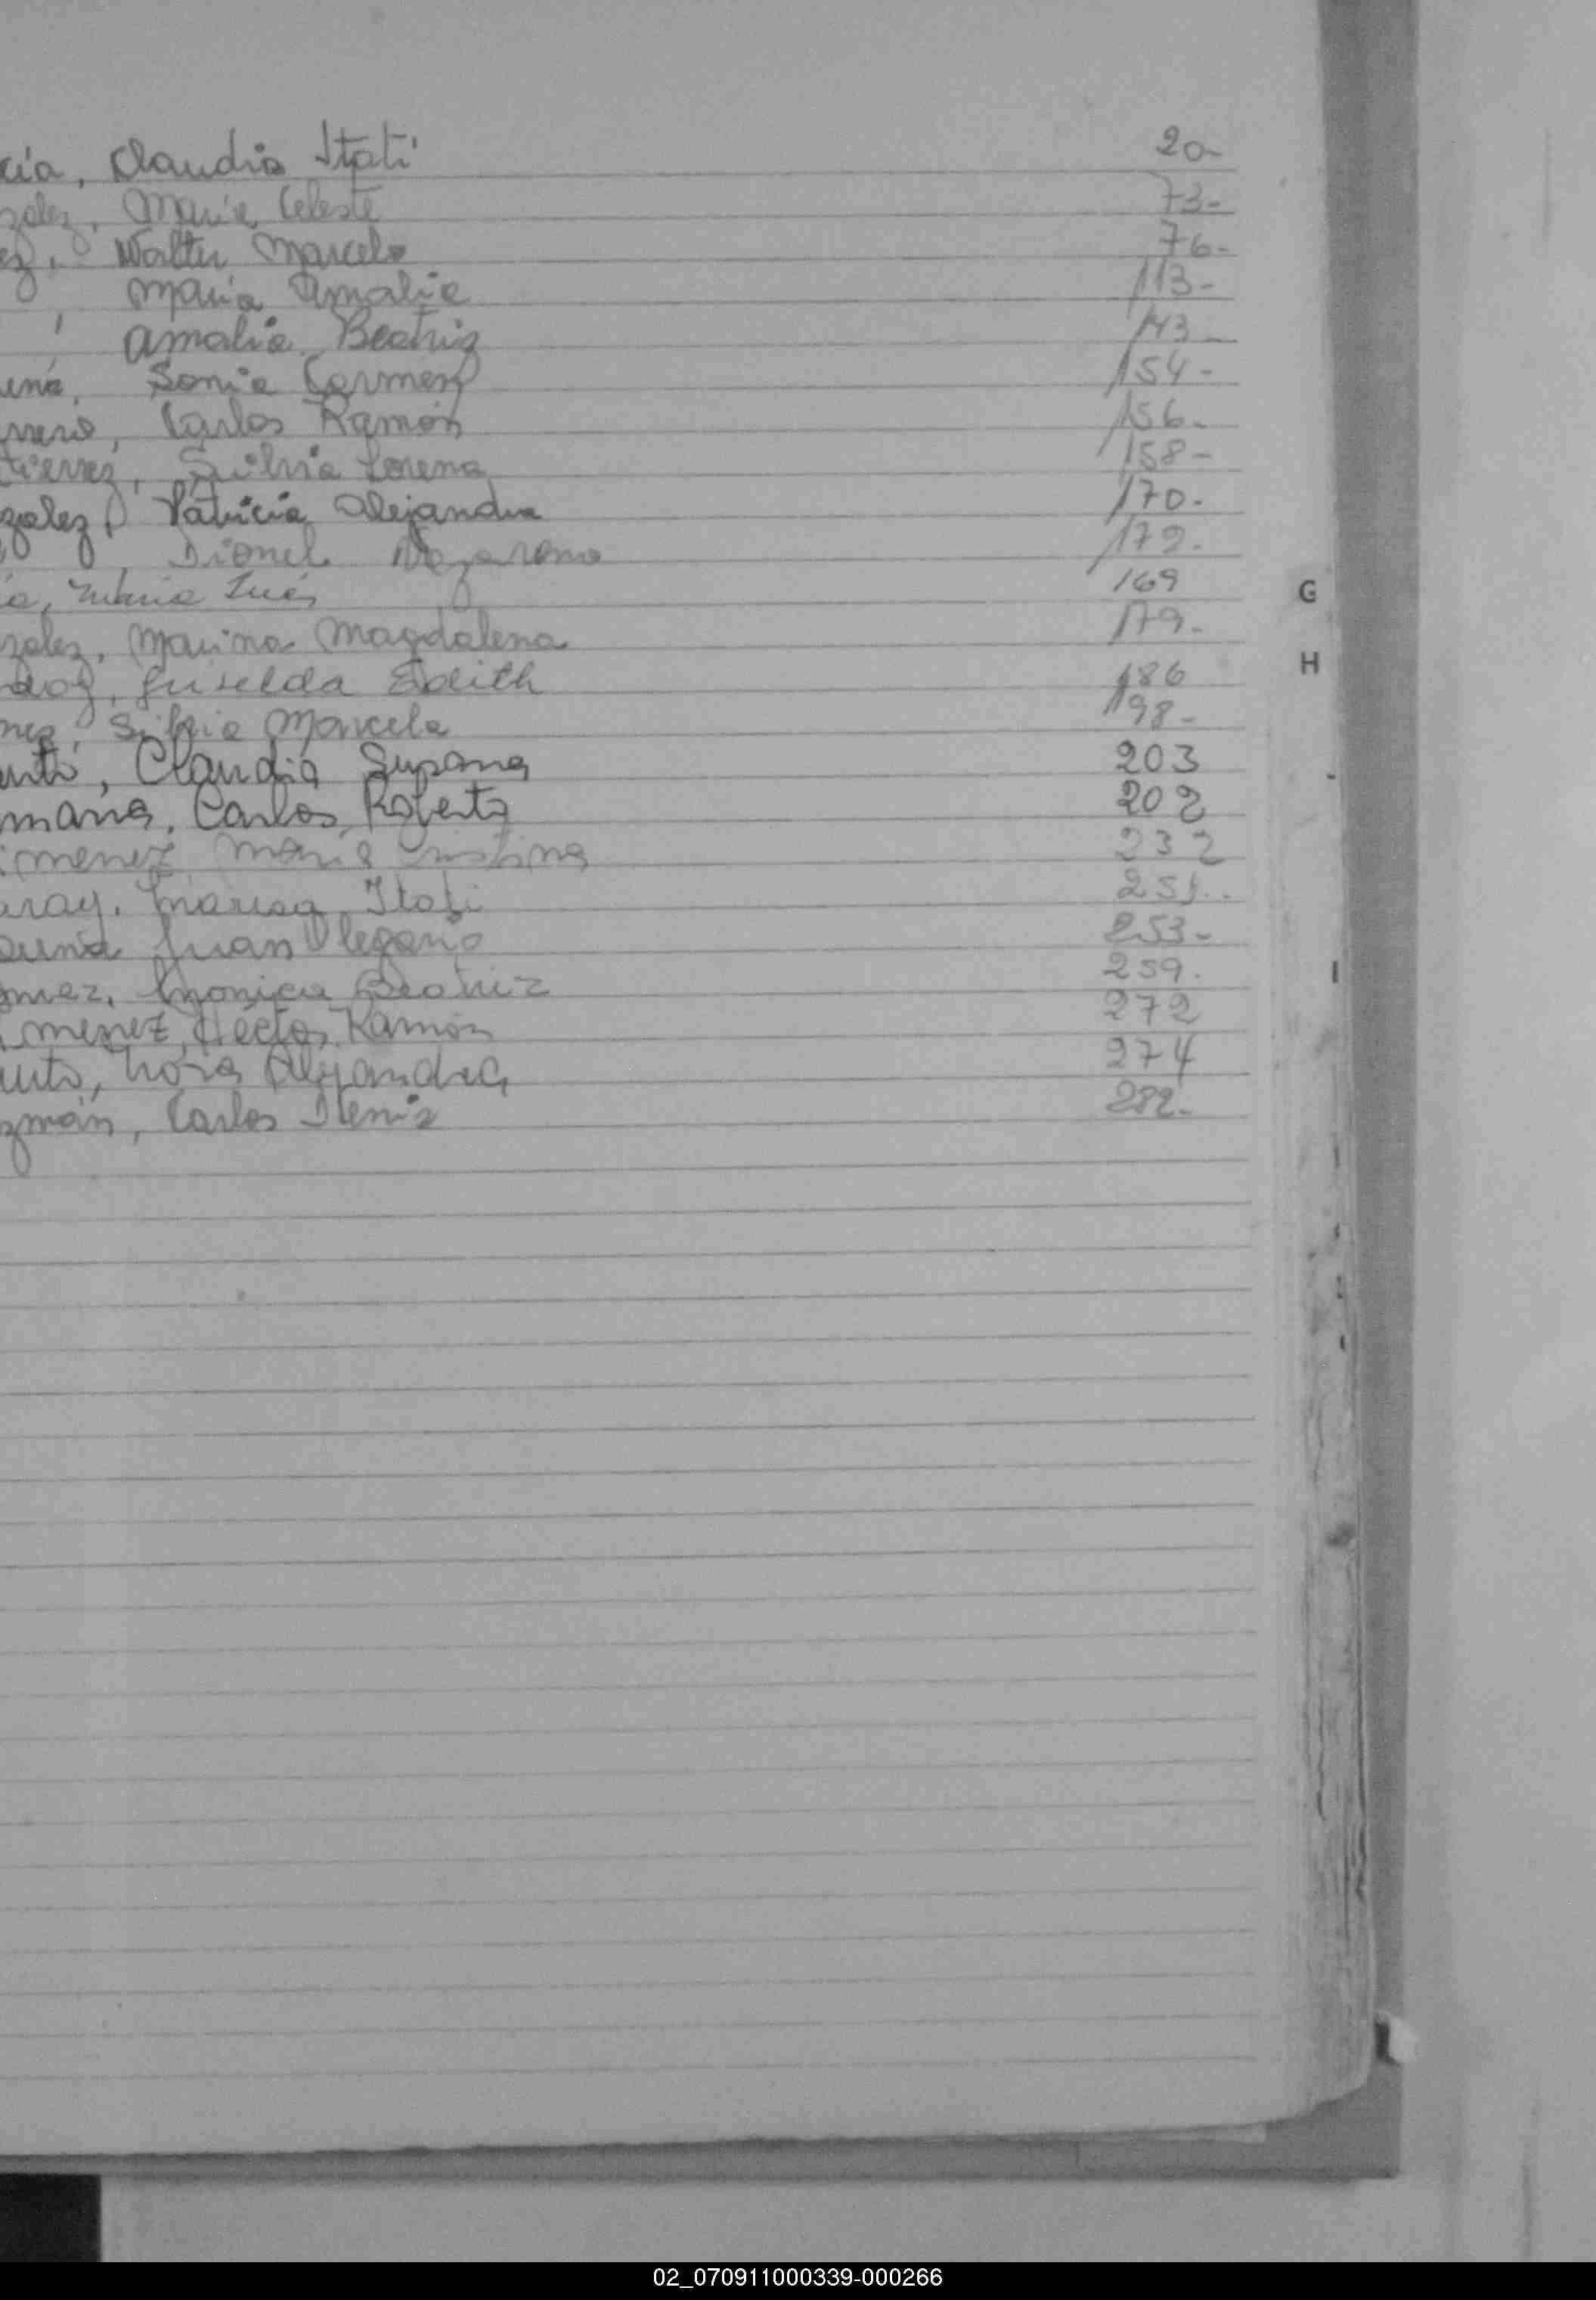 cía, Claudia Itatí 20-
zalez, María Celeste 73-
ez, Walter Marcelo 76-
, María Amalia 113-
, Amalia Beatriz 143-
uena, Sonia Carmen 154-
rrero, Carlos Ramón 156-
tierrez, Silvia Lorena 158-
zalez, Patricia Alejandra 170-
, Lionel Nazareno 172-
ía, María Inés 169
zalez, Marina Magdalena 179-
doz, Griselda Edith 186
mez, Silvia Marcela 198-
auto, Claudia Susana 203
mana, Carlos Roberto 202
imenez, María Cristina 232
aray, Marisa Itatí 251.
Juan Olegario 253-
omez, Monica Beatriz 259.
imenez, Héctor Ramón 272
auto, Nora Alejandra 274
zmán, Carlos Denis 282-
G
H
02_070911000339-000266